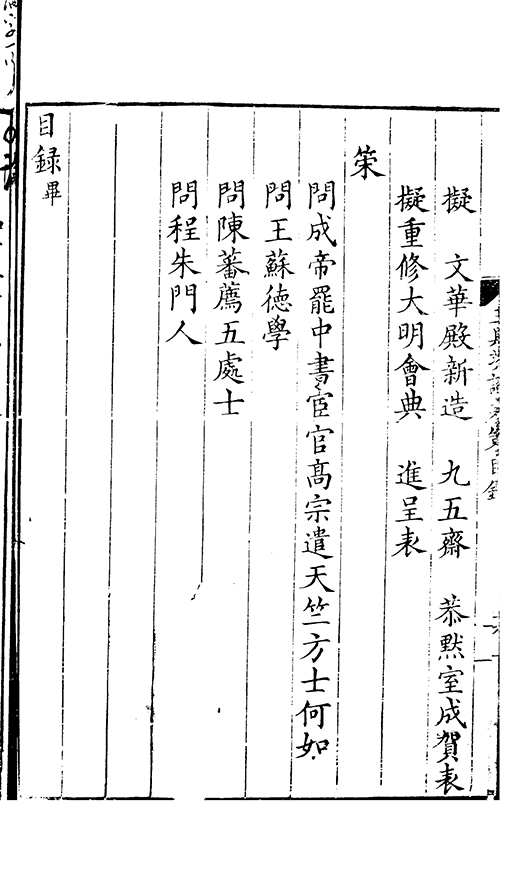 擬　文華殿新造　九五齋　恭默室成賀表
擬重修大明會典　進呈表
策
問成帝罷中書宦官高宗遣天竺方士何如
問王蘇德學
問陳蕃薦五處士
問程朱門人
目録畢